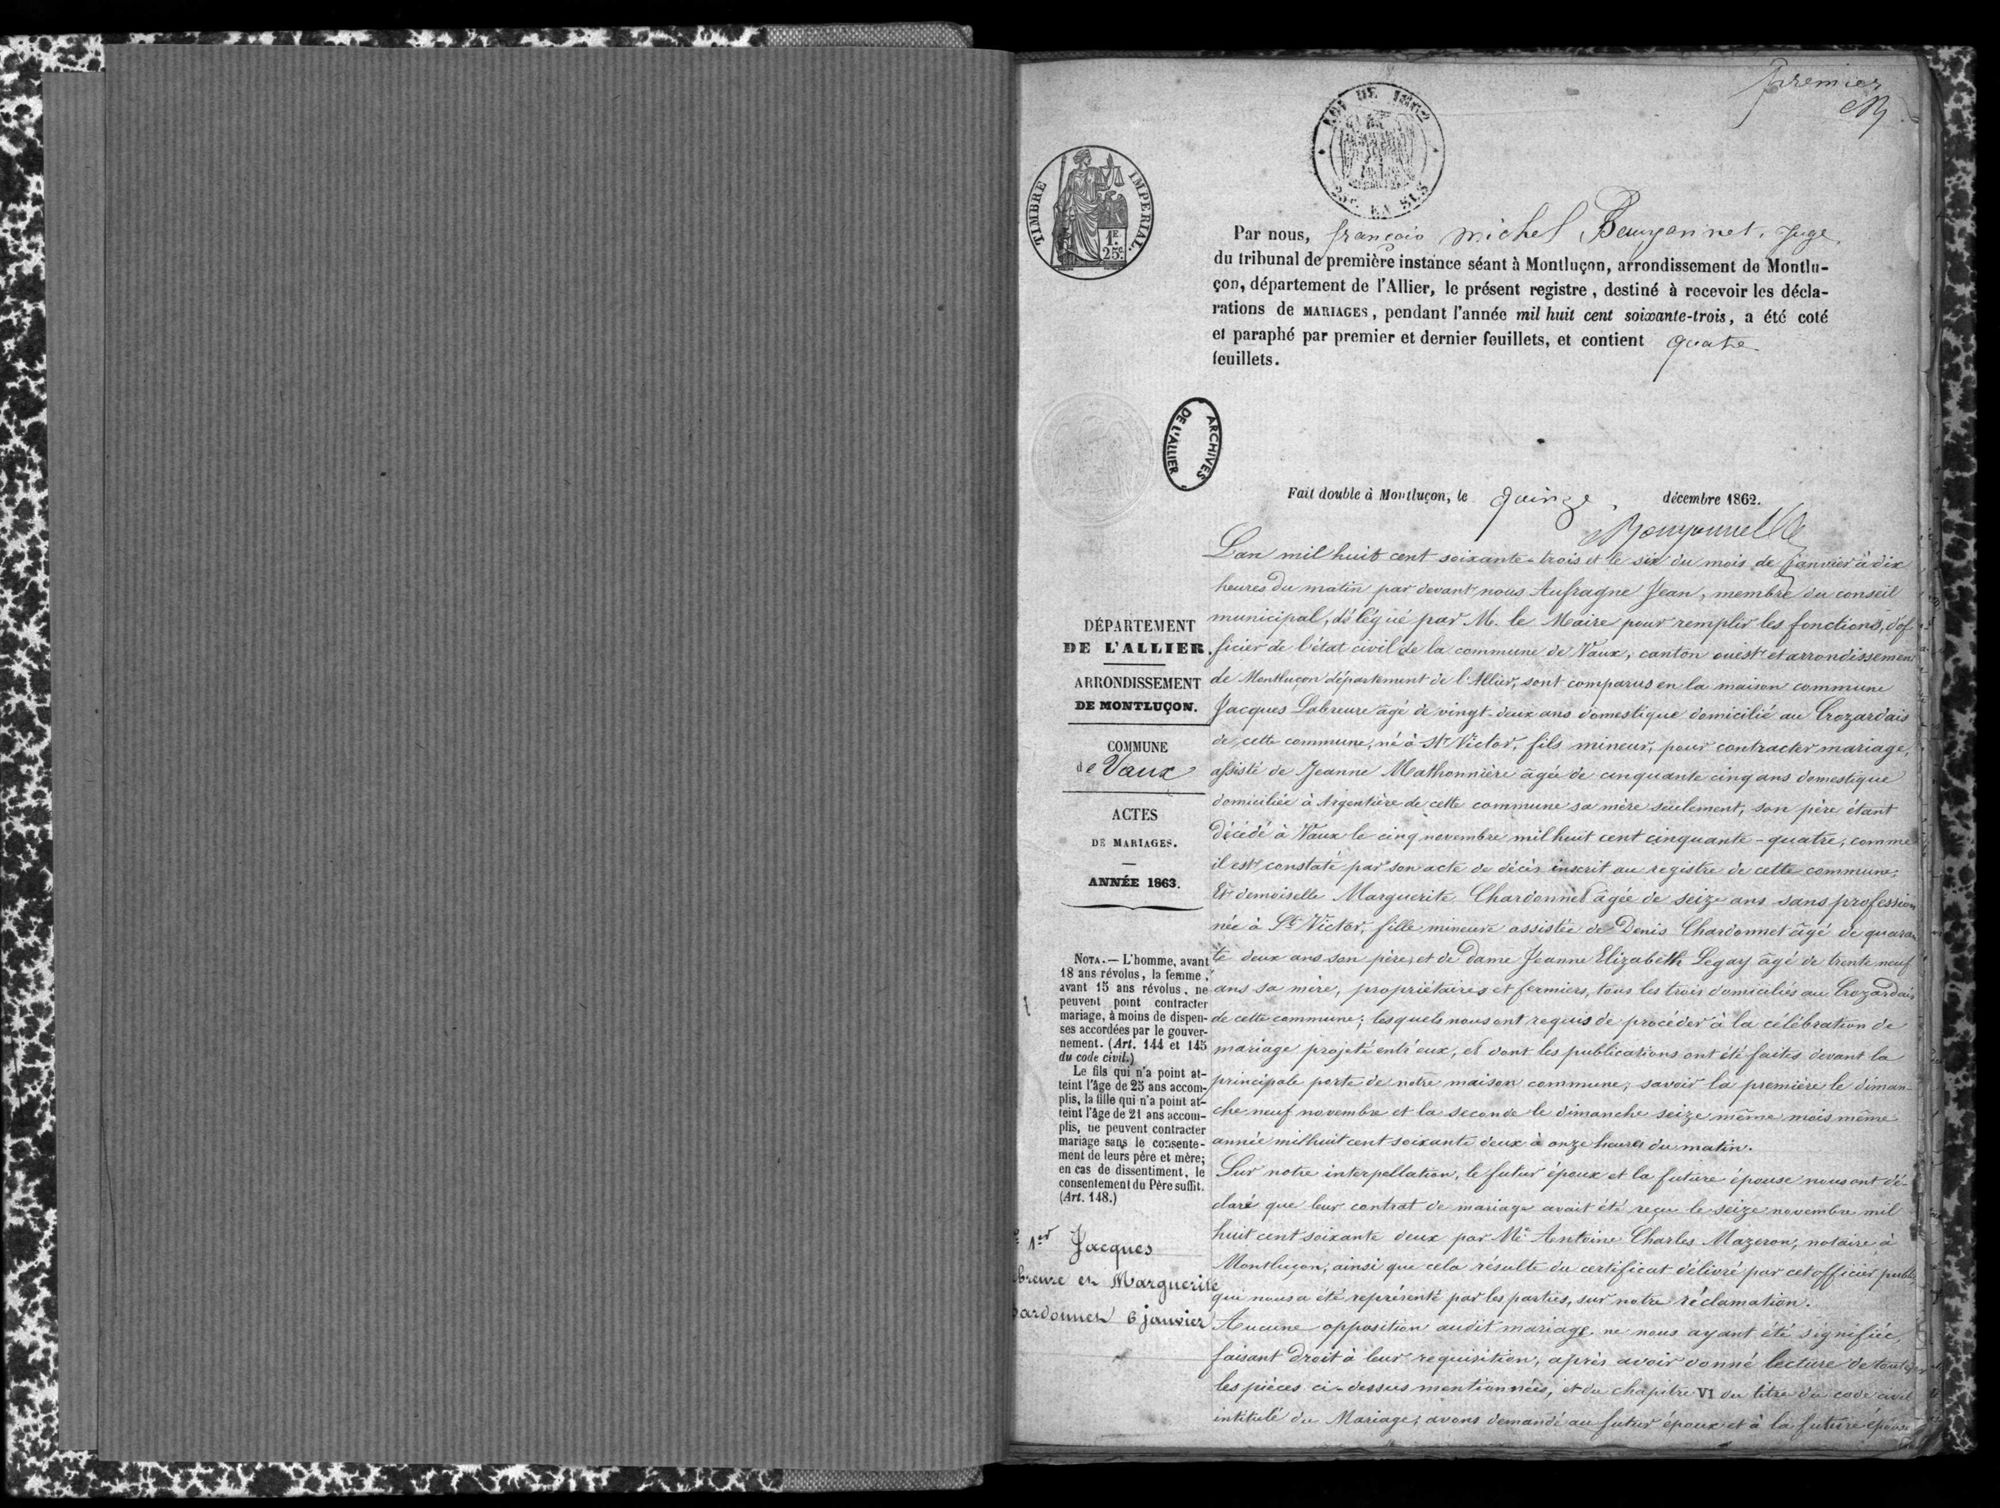 premier
LOI DE 1862
25c. EN SUS
TIMBRE IMPERIAL.
1F.
25c.
Par nous, françois michel Bouyonnet, Juge
du tribunal de première instance séant à Montluçon, arrondissement de Montlu-
çon, département de l'Allier, le présent registre, destiné à recevoir les décla-
rations de MARIAGES, pendant l'année mil huit cent soixante-trois, a été coté
et paraphé par premier et dernier feuillets, et contient quatre
feuillets.
ARCHIVES
DE L'ALLIER
Fait double à Montluçon, le quinze décembre 1862.
DÉPARTEMENT
DE L'ALLIER.
ARRONDISSEMENT
DE MONTLUÇON.
COMMUNE
de Vaux
ACTES
DE MARIAGES.
ANNÉE 1863.
NOTA. — L'homme, avant
18 ans révolus, la femme,
avant 15 ans révolus, ne
peuvent point contracter
mariage, à moins de dispen-
ses accordées par le gouver-
nement. (Art. 144 et 145
du code civil.)
Le fils qui n'a point at-
teint l'âge de 25 ans accom-
plis, la fille qui n'a point at-
teint l'âge de 21 ans accom-
plis, ne peuvent contracter
mariage sans le consente-
ment de leurs père et mère;
en cas de dissentiment, le
consentement du Père suffit.
(Art. 148.)
1er Jacques
breure et Marguerite
ardonnet 6 janvier
L'an mil huit cent soixante-trois et le six du mois de janvier à dix
heures du matin par devant nous Aufragne Jean, membre du conseil
municipal, délégué par M. le Maire pour remplir les fonctions d'of
ficier de l'état civil de la commune de Vaux, canton ouest et arrondissement
de Montluçon département de l'Allier, sont comparus en la maison commune
Jacques Labreure âgé de vingt-deux ans domestique domicilié au Crozardais
de cette commune, né à St Victor, fils mineur, pour contracter mariage,
assisté de Jeanne Mathonnière âgée de cinquante cinq ans domestique
domiciliée à Argentière de cette commune sa mère seulement, son père étant
décédé à Vaux le cinq novembre mil huit cent cinquante-quatre, comme
il est constaté par son acte de décès inscrit au registre de cette commune;
Et demoiselle Marguerite Chardonnet âgée de seize ans sans profession
née à St Victor, fille mineure assistée de Denis Chardonnet âgé de quaran
te deux ans son père, et de Dame Jeanne Elizabeth Legay âgé de trente neuf
ans sa mère, propriétaires et fermiers, tous les trois domiciliés au Crozardais
de cette commune; lesquels nous ont requis de procéder à la célébration de
mariage projeté entr'eux, et dont les publications ont été faites devant la
principale porte de notre maison commune, savoir la première le diman-
che neuf novembre et la seconde le dimanche seize même mois même
année mil huit cent soixante deux à onze heures du matin.
Sur notre interpellation, le futur époux et la future épouse nous ont dé-
claré que leur contrat de mariage avait été reçu le seize novembre mil
huit cent soixante deux par Me Antoine Charles Mazeron, notaire à
Montluçon, ainsi que cela résulte du certificat délivré par cet officier public
qui nous a été représenté par les parties, sur notre réclamation.
Aucune opposition audit mariage ne nous ayant été signifiée,
faisant droit à leur requisition, après avoir donné lecture de toutes
les pièces ci-dessus mentionnées, et du chapitre VI du titre du code civil
intitulé du Mariage, avons demandé au futur époux et à la future épouse